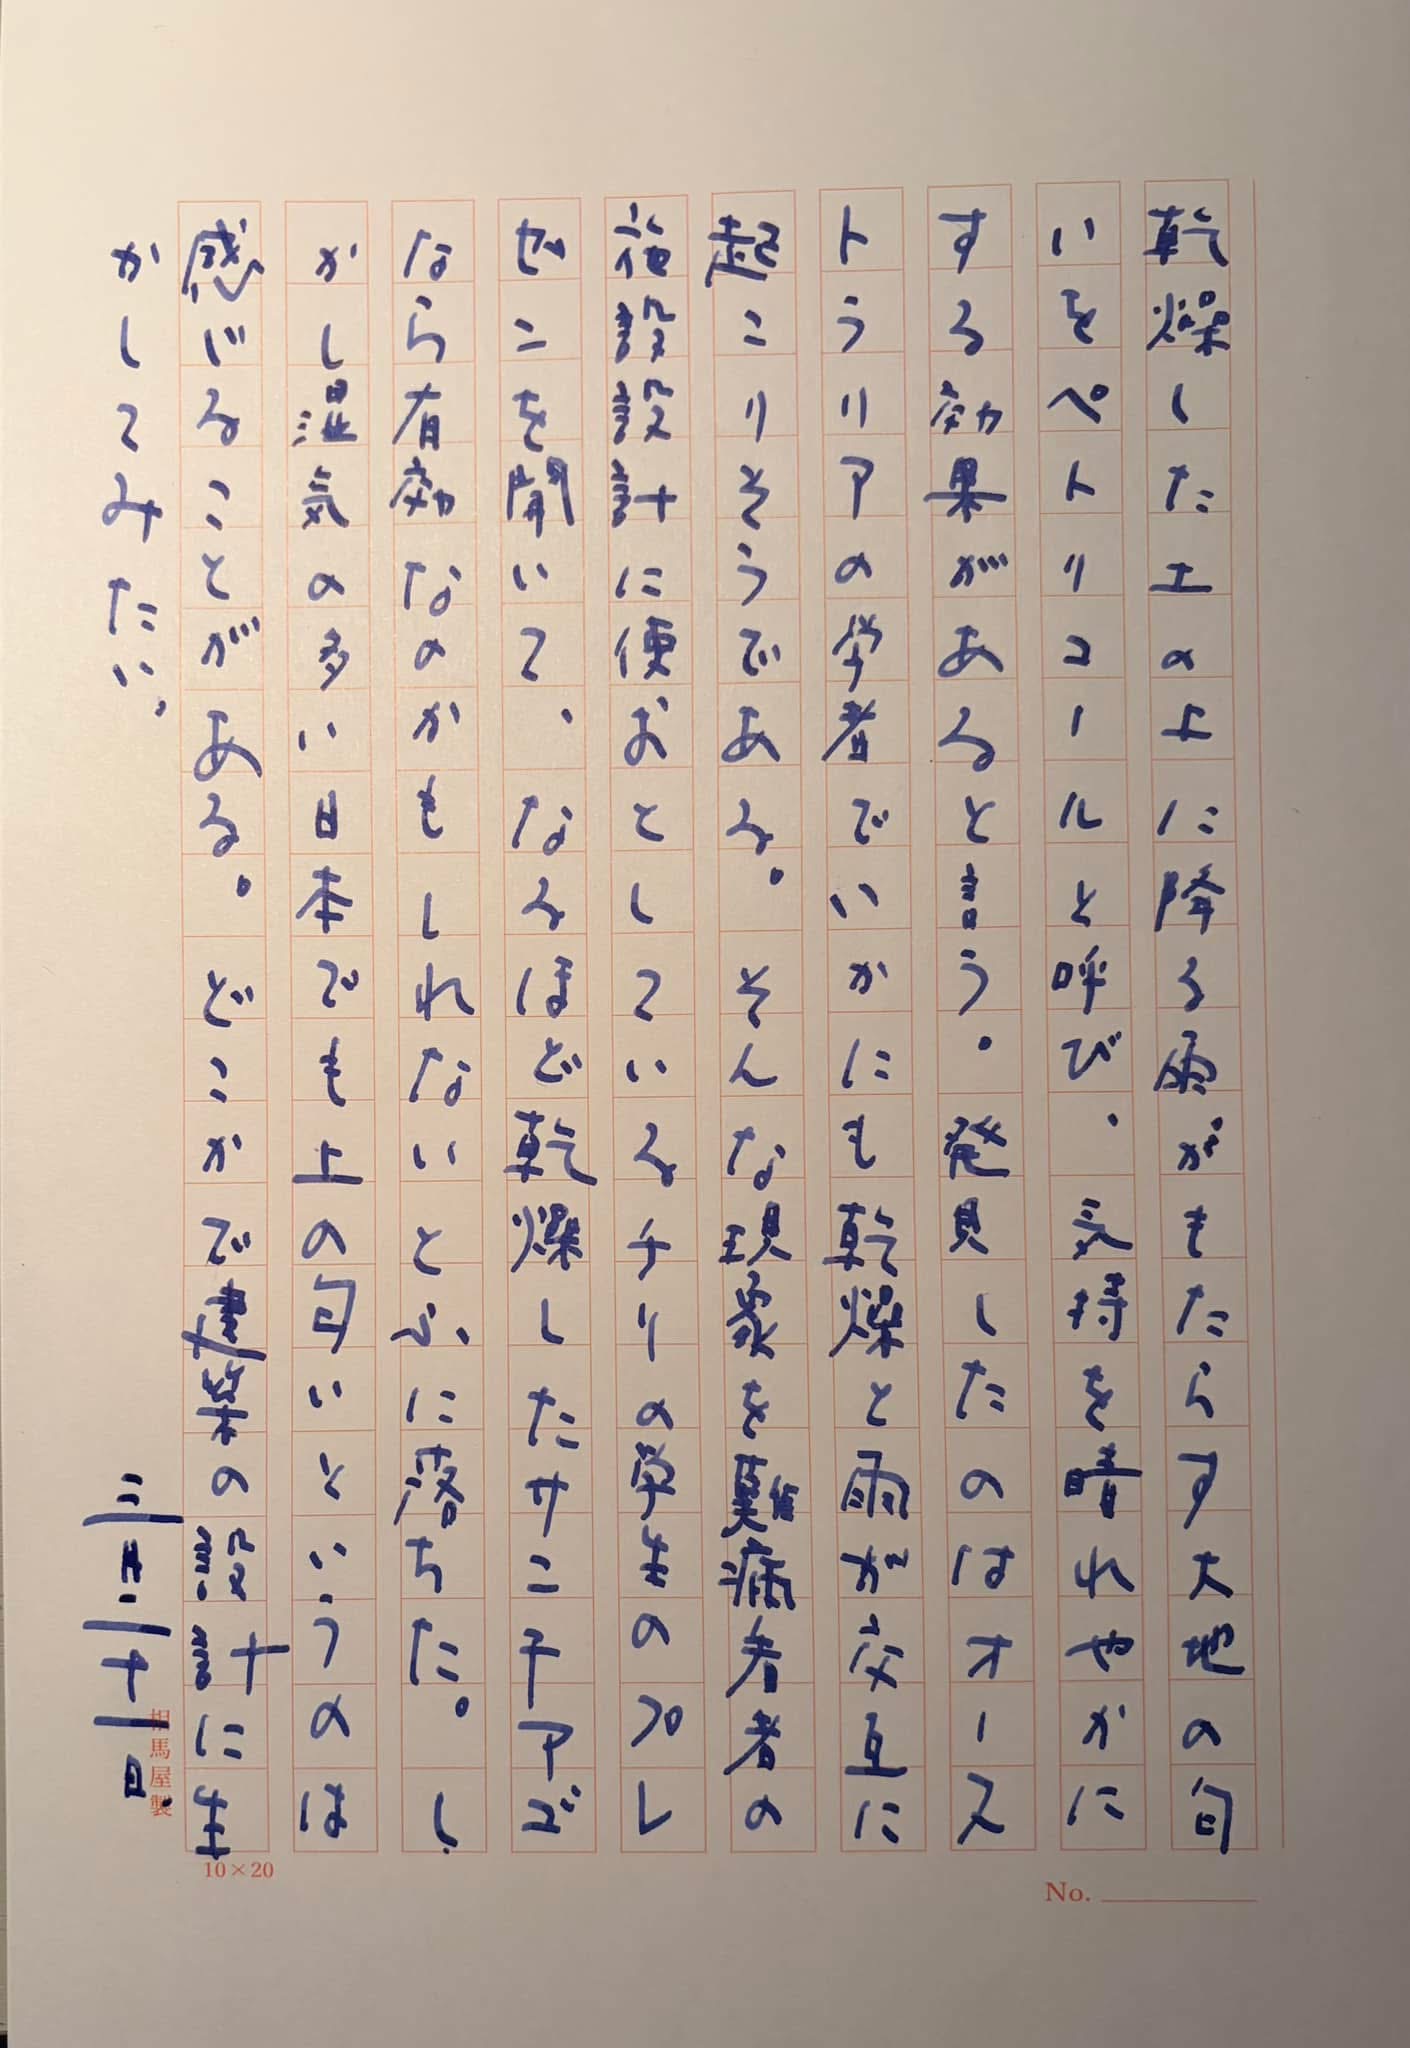 乾燥した土の上に降る雨がもたらす大地の匂
いをペトリコールと呼び、気持を晴れやかに
する効果があると言う。発見したのはオース
トラリアの学者でいかにも乾燥と雨が交互に
起こりそうである。そんな現象を難病者者の
施設設計に使おとしているチリの学生のプレ
ゼンを聞いて、なるほど乾燥したサンチアゴ
なら有効なのかもしれないとふに落ちた。し
かし湿気の多い日本でも土の匂いというのは
感じることがある。どこかで建築の設計に生
かしてみたい。
相馬屋製
10×20
No.